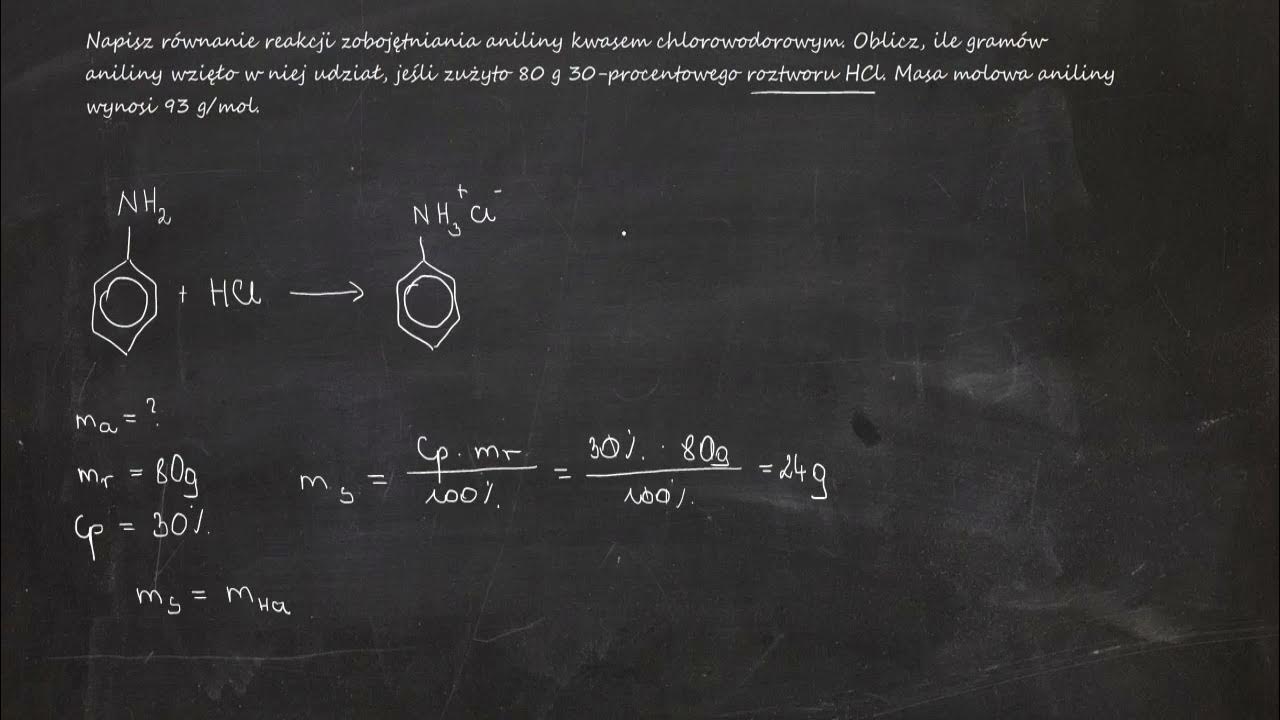 Napisz równanie reakcji zobojętniania aniliny kwasem chlorowodorowym. Oblicz, ile gramów
aniliny wzięło w niej udział, jeśli zużyto 80 g 30-procentowego roztworu HCl. Masa molowa aniliny
wynosi 93 g/mol.
NH₂
NH₃⁺Cl⁻
+ HCl ⟶
mₐ = ?
mᵣ = 80g
Cp = 30%
mₛ = Cp · mᵣ / 100% = 30% · 80g / 100% = 24g
mₛ = m_HCl